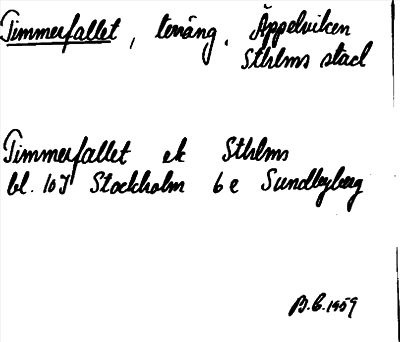 Timmerfallet, terräng. Äppelviken
Sthlms stad
Timmerfallet ek Sthlms
bl. 10I Stockholm 6e Sundbyberg
B.C. 1959